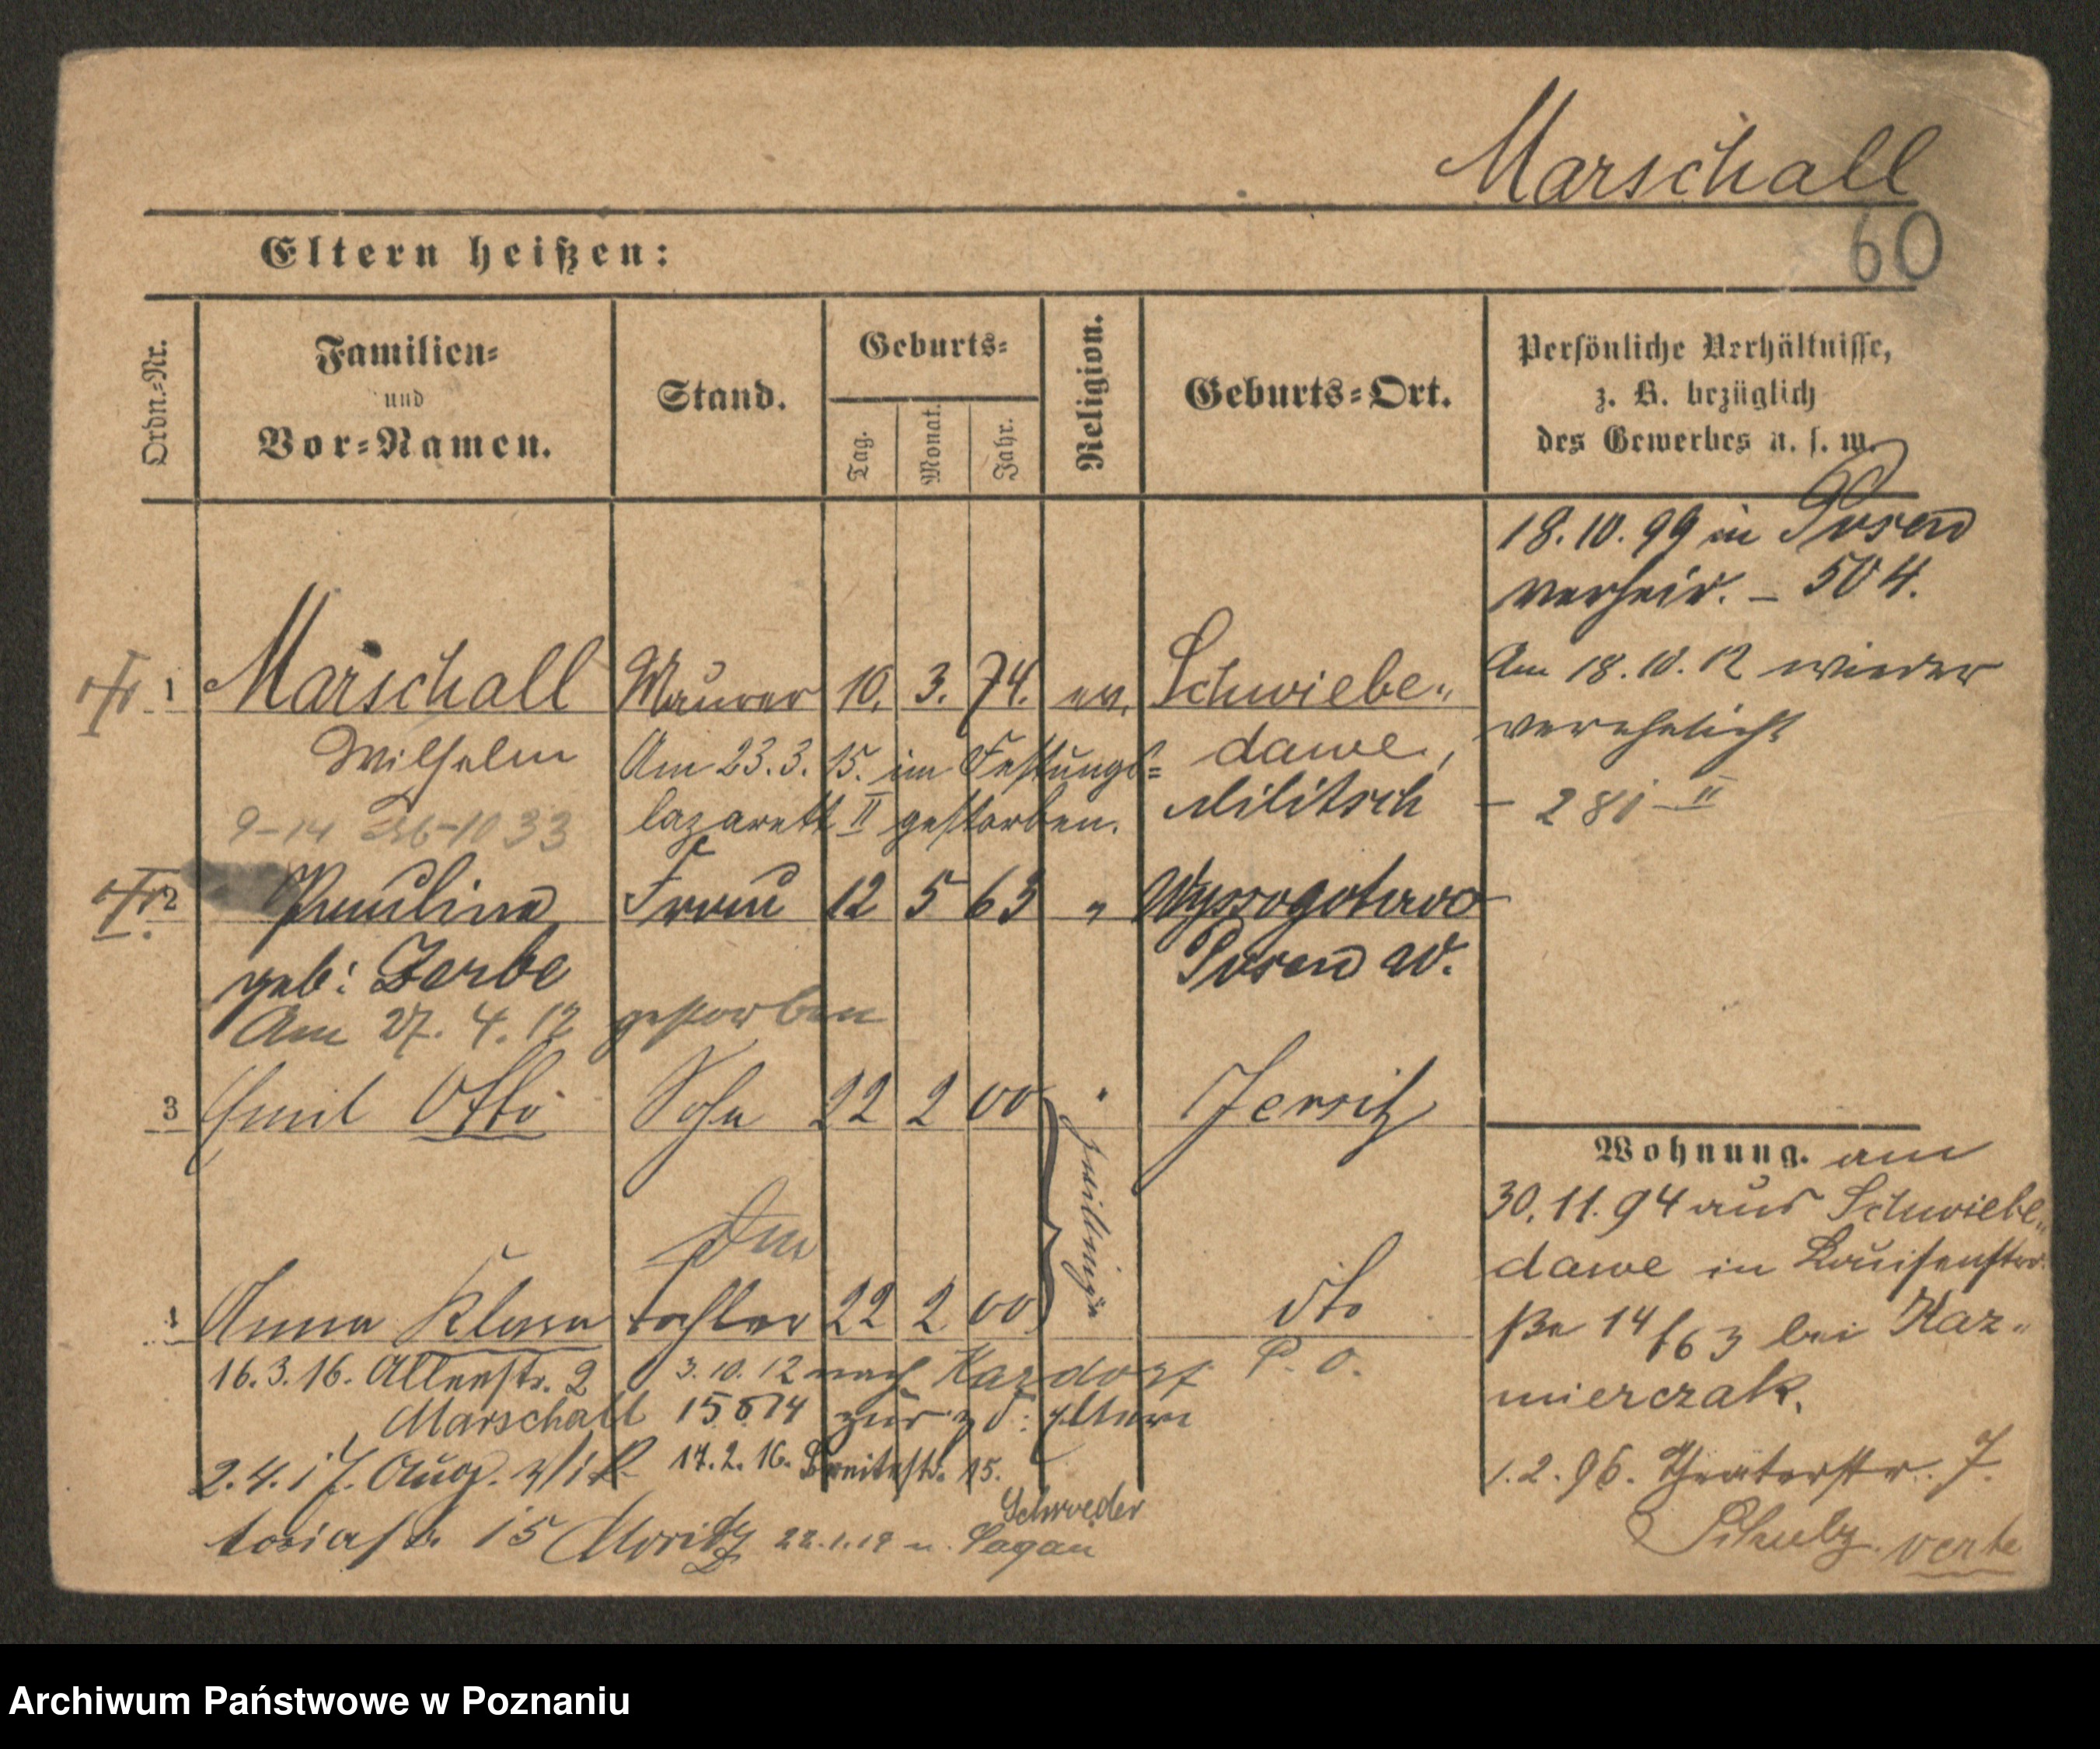 Marschall
60
Eltern heißen:
Ordn.-Nr.
Familien-
und
Vor-Namen.
Stand.
Geburts-
Tag.
Monat.
Jahr.
Religion.
Geburts-Ort.
Persönliche Verhältnisse,
z. B. bezüglich
des Gewerbes u. s. w.
18.10.99 in Posen
verheir. – 504.
1 Marschall Maurer 10. 3. 74. ev. Schwiebe„
Wilhelm
dawe,
Militsch
Am 23.3.15. im Festungs=
lazarett II gestorben.
Am 18.10.12 wieder
verehelicht
– 281 – II
9–14 1033
2 Pauline Frau 12 5 63 „ Wyssogotowo
geb: Zerbe
Posen W.
Am 27.4.12 gestorben
3 Emil Otto Sohn 22 2 00 " Jersitz
Zwillinge
Anna Klara tochter 22 2 00 dto
P. O.
16.3.16. Allerstr. 2
Marschall
3.10.12 nach
15 5 14 zur
17.2.16. Breitestr. 15.
2.4.17. Aug. Vik
toriastr. 15 Moritz
22.1.19 n. Sagan
Schroeder
Wohnung. am
30.11.94 aus Schwiebe„
dawe in Louisenstra
ße 14/63 bei Kaz„
mierczak.
1.2.96. Theaterstr. 7.
Schulz. verte
Archiwum Państwowe w Poznaniu